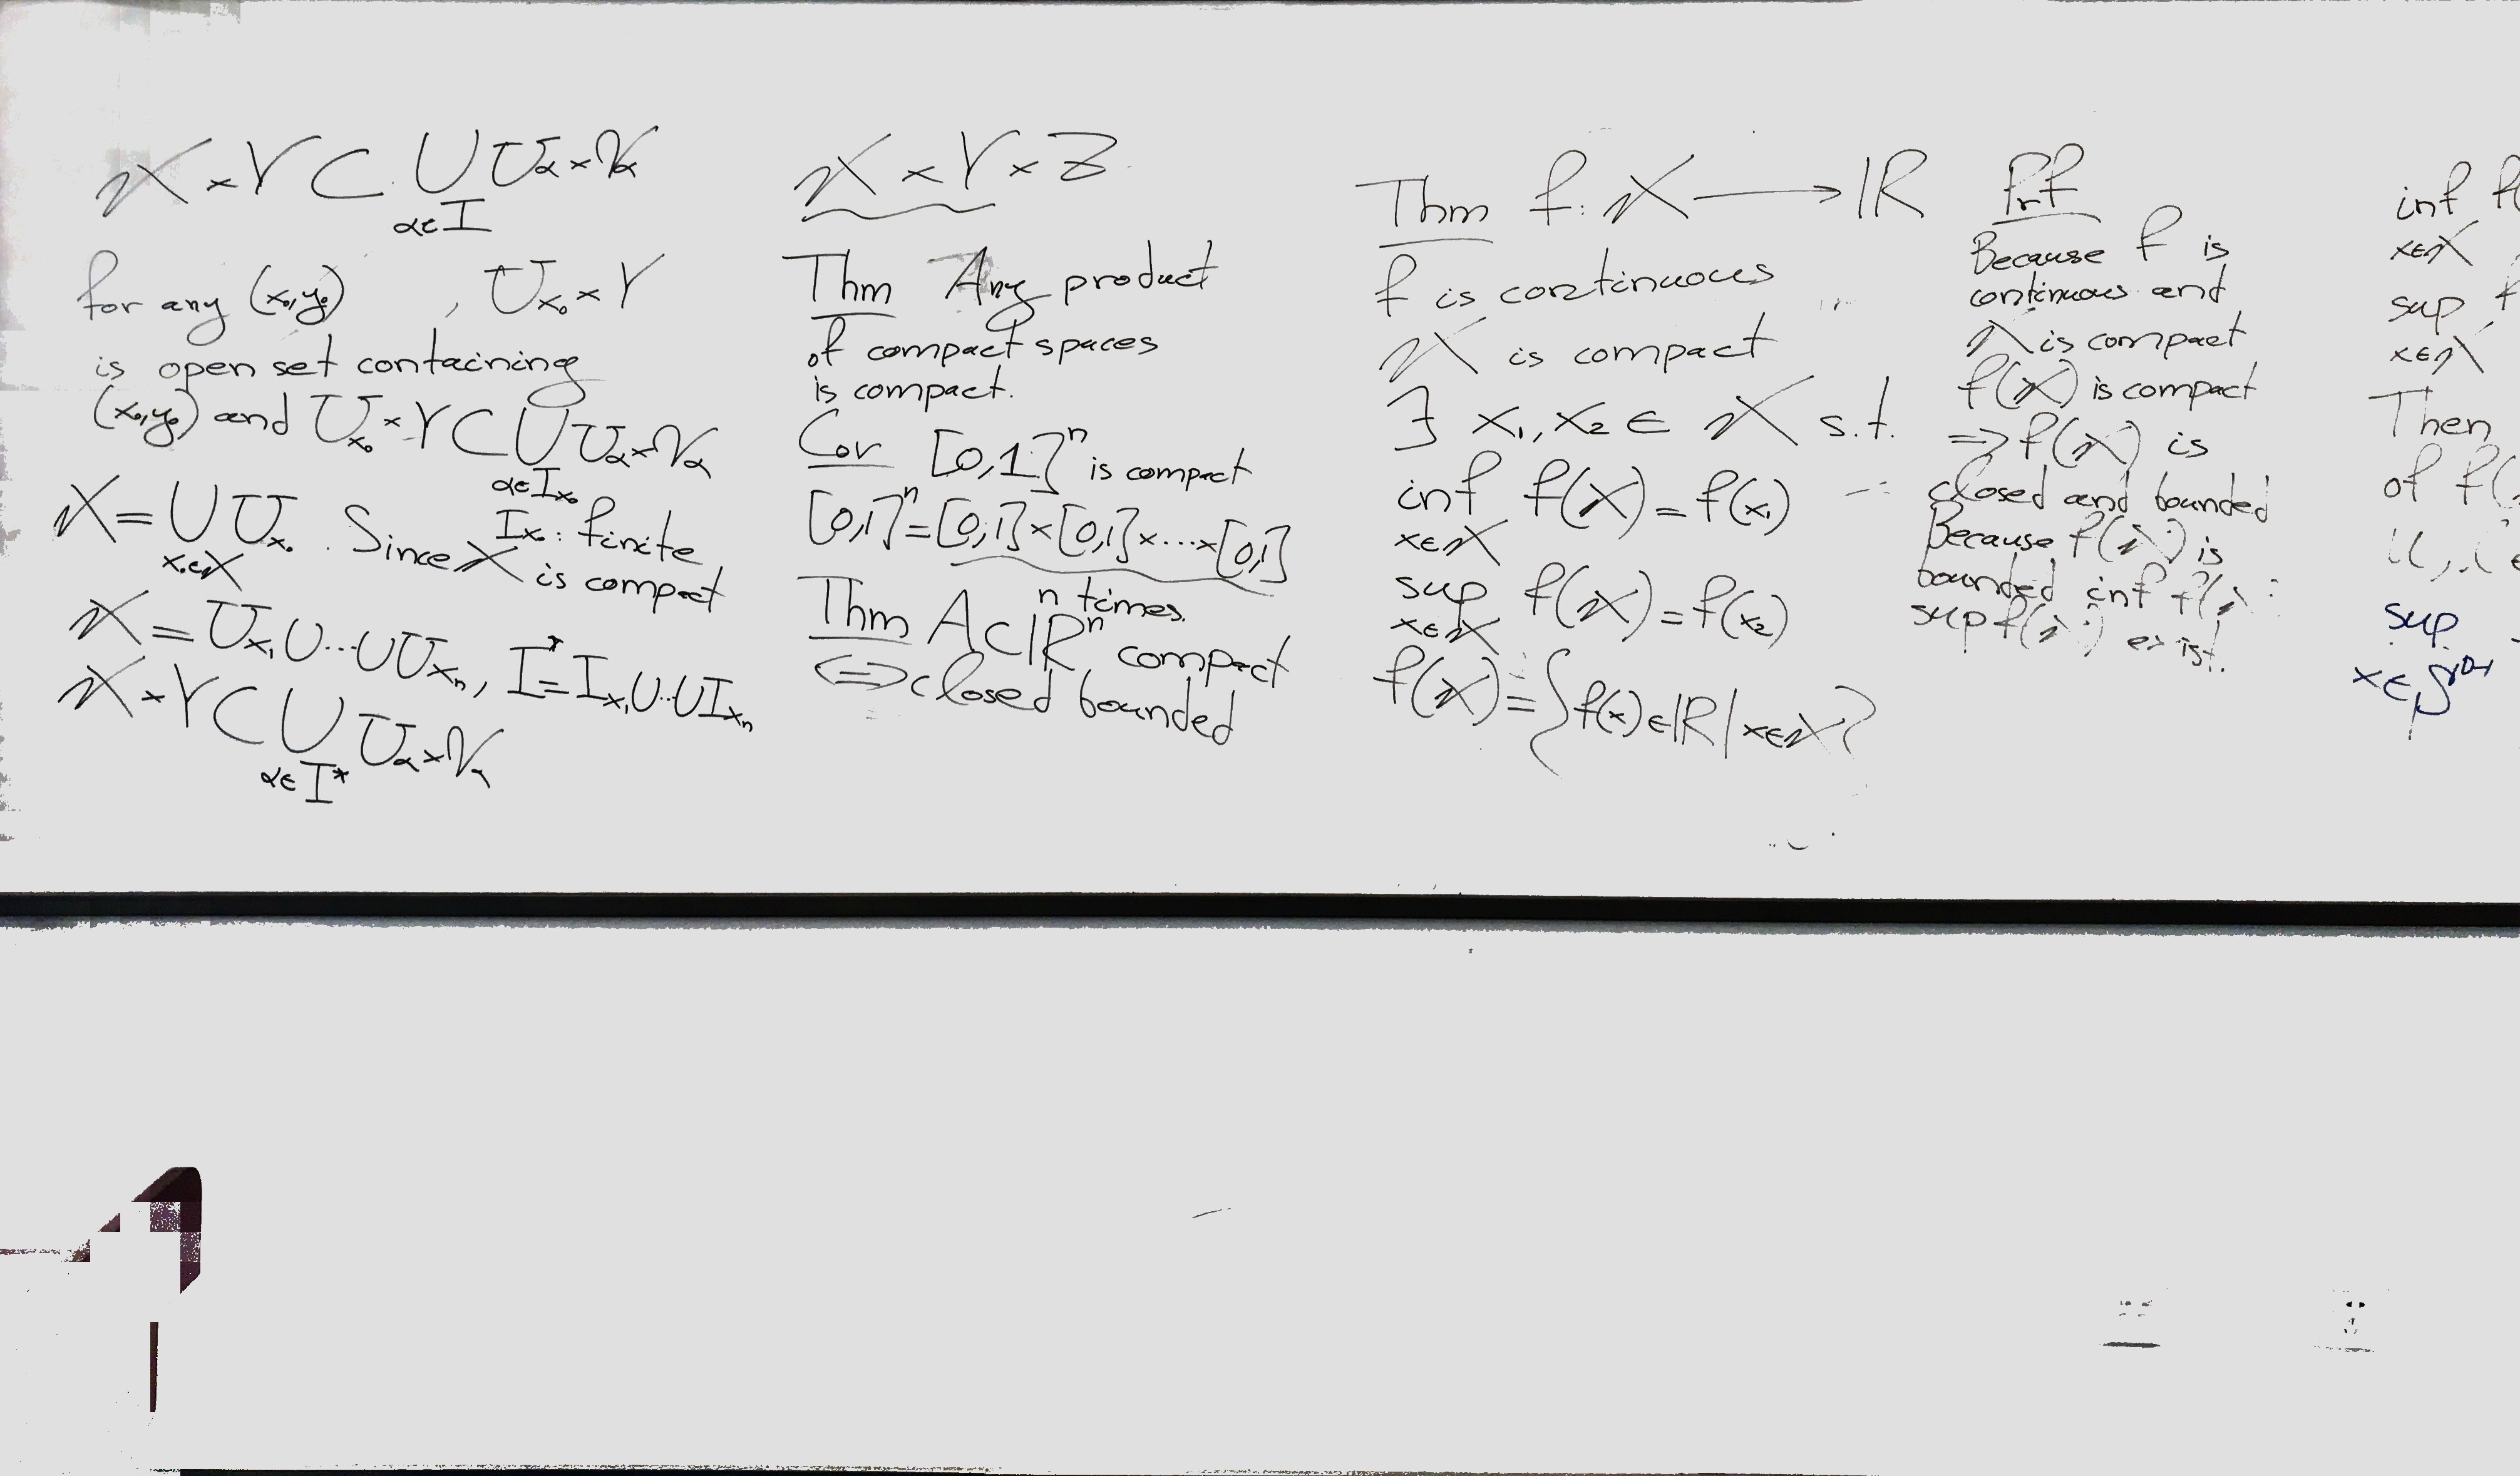 X × Y ⊂ ⋃ Uα × Vα
α∈I
for any (x₀,y₀) , Ux₀ × Y
is open set containing
(x₀,y₀) and Ux₀ × Y ⊂ ⋃ Uα × Vα
α∈Ix₀
Ix₀: finite
X = ⋃ Ux₀ . Since X is compact
x₀∈X
X = Ux₁ ∪ ... ∪ Uxₙ , I* = Ix₁ ∪ ... ∪ Ixₙ
X × Y ⊂ ⋃ Uα × Vα
α∈I*
X × Y × Z
Thm Any product
of compact spaces
is compact.
Cor [0,1]ⁿ is compact
[0,1]ⁿ = [0,1] × [0,1] × ... × [0,1]
n times.
Thm A ⊂ ℝⁿ compact
⇔ closed bounded
Thm f: X ⟶ ℝ
f is continuous
X is compact
∃ x₁, x₂ ∈ X s.t.
inf f(X) = f(x₁)
x∈X
sup f(X) = f(x₂)
x∈X
f(X) = {f(x) ∈ ℝ | x∈X}
Prf
Because f is
continuous and
X is compact
f(X) is compact
⇒ f(X) is
closed and bounded
Because f(X) is
bounded inf f(X)
sup f(X) exist.
inf f(
x∈X
sup f
x∈X
Then
of f(
sup
x∈Sⁿ⁻¹